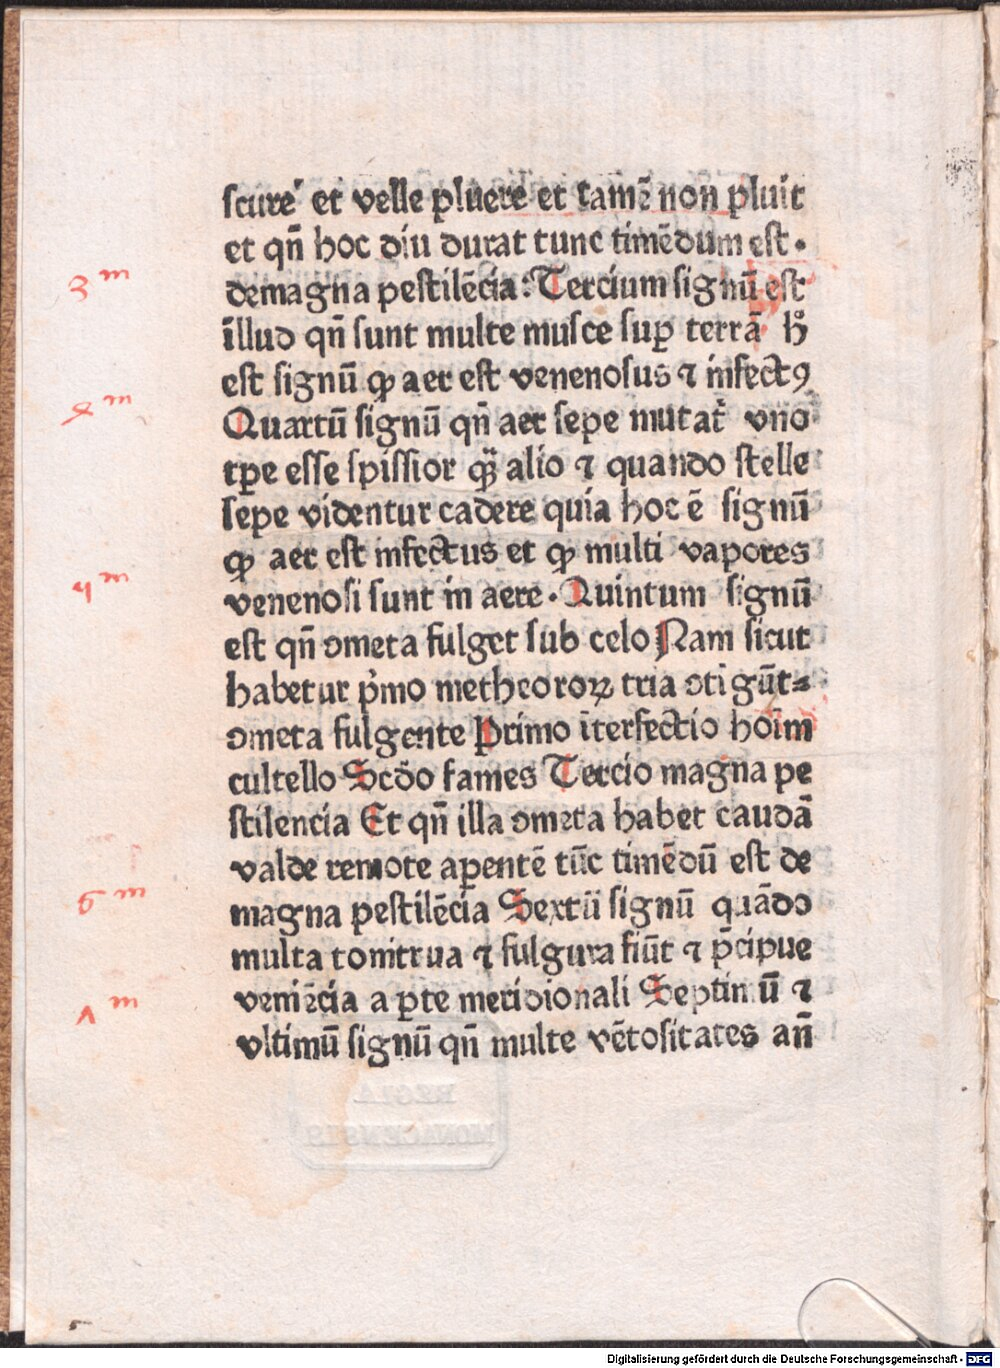 scure' et velle pluere et tamē non pluit
et qn̄ hoc diu durat tunc timēdum est.
demagna pestilēcia: Tercium signū est
illud qn̄ sunt multe musce suꝑ terrā h°
3m
est signū ꝙ aer est venenosus ⁊ infectꝰ
4m
Quartū signū qn̄ aer sepe mutat᷑ vno
tꝑe esse spissior q̄ȝ alio ⁊ quando stelle
sepe videntur cadere quia hoc ē signū
ꝙ aer est infectus et ꝙ multi vapores
5m
venenosi sunt in aere. Quintum signū
est qn̄ ꝯmeta fulget sub celo Nam sicut
habetur pͥmo metheoroꝝ tria ꝯtigūt⸗
ꝯmeta fulgente Primo īterfectio hoīm
cultello Scd̄o fames Tercio magna pe
stilencia Et qn̄ illa ꝯmeta habet caudā
valde remote aꝑentē tūc timēdū est de
6m
magna pestilēcia Sextū signū quādo
multa tonitrua ⁊ fulgura fiūt ⁊ p̄cipue
7m
veniēcia a ꝑte meridionali Septimū ⁊
vltimū signū qn̄ multe vētositates an̄
Digitalisierung gefördert durch die Deutsche Forschungsgemeinschaft - DFG